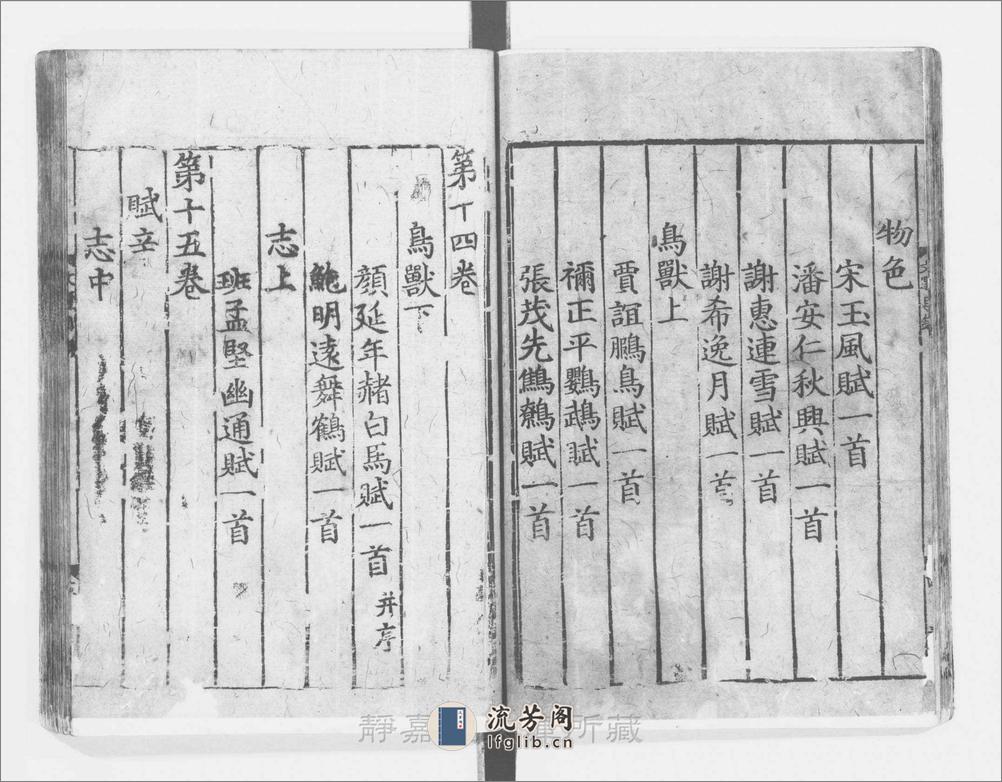 物色
宋玉風賦一首
潘安仁秋興賦一首
謝惠連雪賦一首
謝希逸月賦一首
鳥獸上
賈誼鵩鳥賦一首
禰正平鸚鵡賦一首
張茂先鷦鷯賦一首
第十四卷
鳥獸下
顏延年赭白馬賦一首 并序
鮑明遠舞鶴賦一首
志上
班孟堅幽通賦一首
第十五卷
賦辛
志中
靜嘉
所藏
流芳阁
lfglib.cn